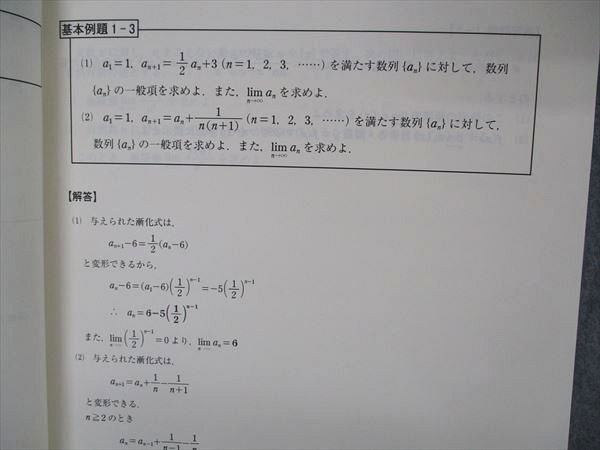 基本例題 1-3
(1) a₁=1, aₙ₊₁=1/2 aₙ+3 (n=1, 2, 3, ……) を満たす数列 {aₙ} に対して, 数列
{aₙ} の一般項を求めよ. また, lim_{n→∞} aₙ を求めよ.
(2) a₁=1, aₙ₊₁=aₙ+1/n(n+1) (n=1, 2, 3, ……) を満たす数列 {aₙ} に対して,
数列 {aₙ} の一般項を求めよ. また, lim_{n→∞} aₙ を求めよ.
【解答】
(1) 与えられた漸化式は,
aₙ₊₁-6=1/2(aₙ-6)
と変形できるから,
aₙ-6=(a₁-6)(1/2)ⁿ⁻¹=-5(1/2)ⁿ⁻¹
∴ aₙ=6-5(1/2)ⁿ⁻¹
また, lim_{n→∞}(1/2)ⁿ⁻¹=0 より, lim_{n→∞} aₙ=6
(2) 与えられた漸化式は,
aₙ₊₁=aₙ+1/n-1/n+1
と変形できる.
n≧2 のとき
aₙ=aₙ₋₁+1/n-1-1/n